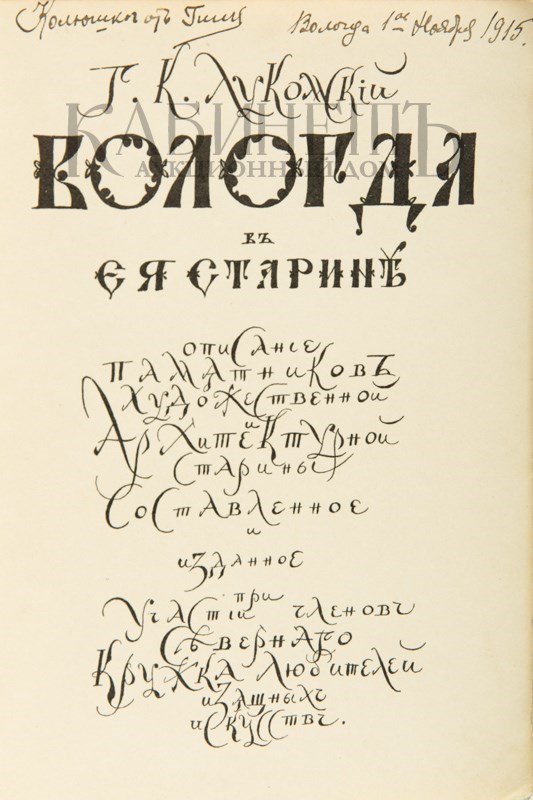 Вологда 1ое Ноября 1915.
Г. К. Лукомскій
КАБИНЕТЪ
АУКЦИОННЫЙ ДОМ
ВОЛОГДА
въ
ЕЯ СТАРИНѢ
описаніе
памятниковъ
художественной
и
архитектурной
старины
составленное
и
изданное
при
участіи членовъ
Сѣвернаго
Кружка Любителей
изящныхъ
искусствъ.